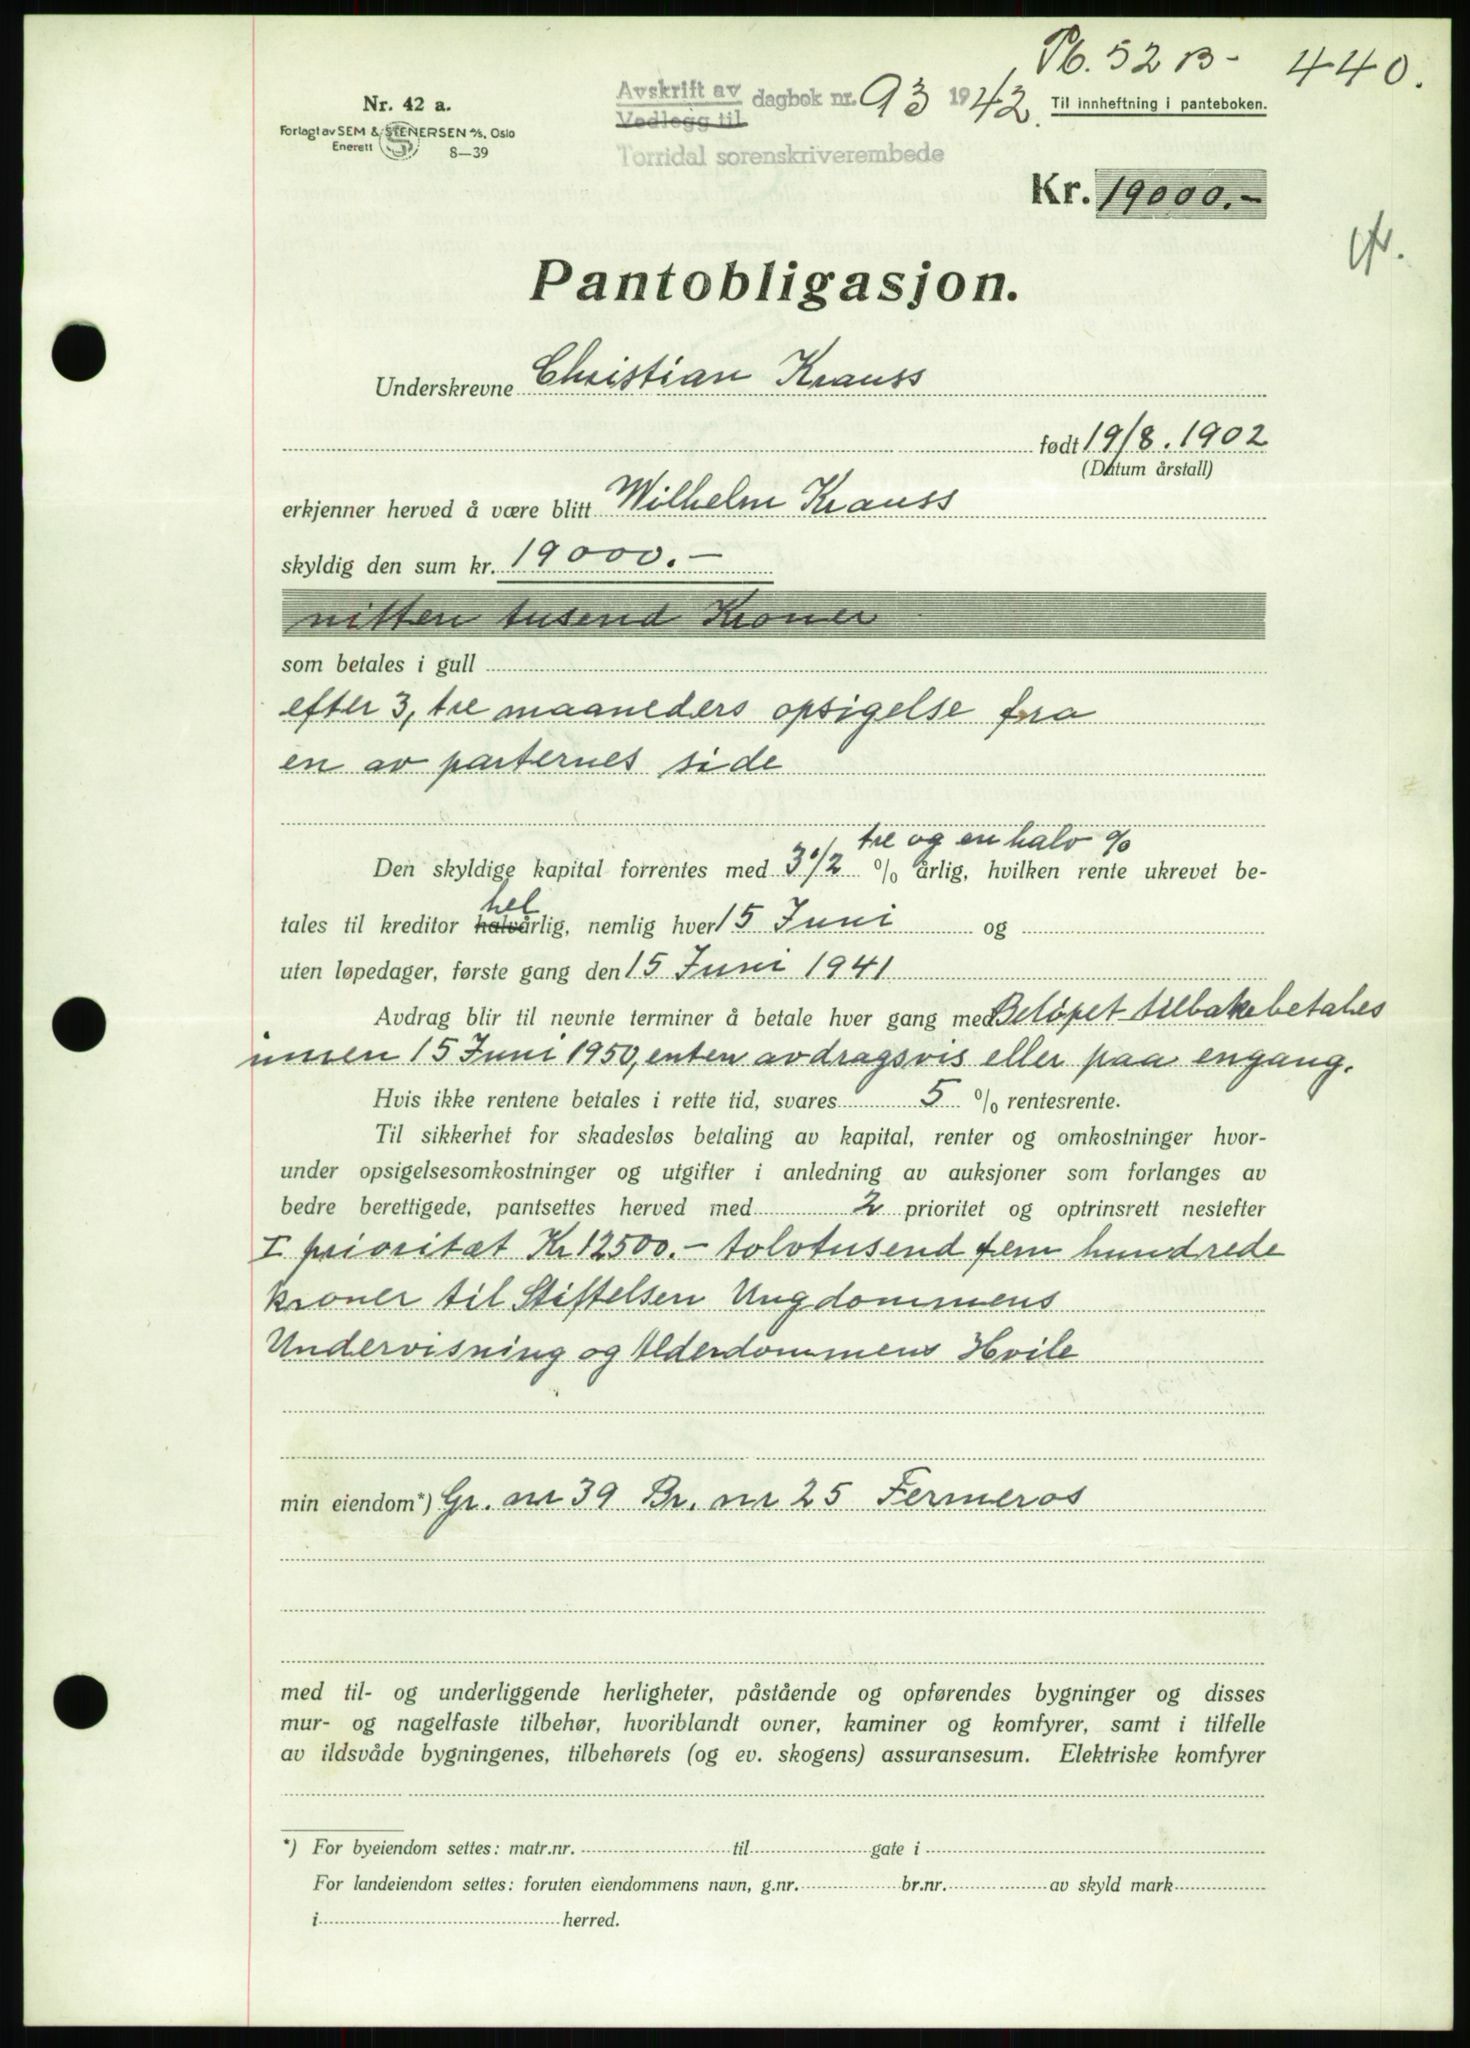 Pb. 52 B - 440.
Nr. 42 a.
Forlagt av SEM & STENERSEN A/S, Oslo
Enerett
8—39
Avskrift av
Vedlegg til
dagbok nr. 93 1942.
Torridal sorenskriverembede
Til innheftning i panteboken.
Kr. 19000.-
Pantobligasjon.
Underskrevne Christian Krauss
født 19/8. 1902
(Datum årstall)
erkjenner herved å være blitt Wilhelm Krauss
skyldig den sum kr. 19000.-
nitten tusend Kroner
som betales i gull
efter 3, tre maaneders opsigelse fra
en av parternes side
tre og en halv %
Den skyldige kapital forrentes med 3 1/2 % årlig, hvilken rente ukrevet be-
hel
tales til kreditor halvårlig, nemlig hver 15 Juni og
uten løpedager, første gang den 15 Juni 1941
Avdrag blir til nevnte terminer å betale hver gang med Beløpet tilbakebetales
innen 15 Juni 1950, enten avdragsvis eller paa engang.
Hvis ikke rentene betales i rette tid, svares 5 % rentesrente.
Til sikkerhet for skadesløs betaling av kapital, renter og omkostninger hvor-
under opsigelsesomkostninger og utgifter i anledning av auksjoner som forlanges av
bedre berettigede, pantsettes herved med 2 prioritet og optrinsrett nestefter
I prioritæt Kr 12500.- tolvtusend fem hundrede
kroner til Stiftelsen Ungdommens
Undervisning og Alderdommens Hvile
min eiendom*) Gr. nr 39 Br. nr 25 Fermeros
med til- og underliggende herligheter, påstående og opførendes bygninger og disses
mur- og nagelfaste tilbehør, hvoriblandt ovner, kaminer og komfyrer, samt i tilfelle
av ildsvåde bygningenes, tilbehørets (og ev. skogens) assuransesum. Elektriske komfyrer
*) For byeiendom settes: matr.nr. til gate i
For landeiendom settes: foruten eiendommens navn, g.nr. br.nr. av skyld mark
i herred.